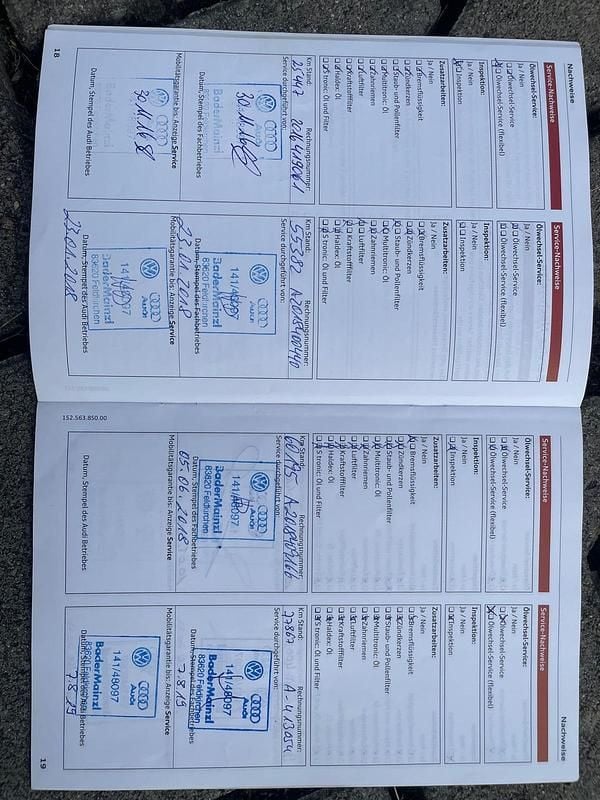 Nachweise
Service-Nachweise
Ölwechsel-Service:
Ja / Nein
Ölwechsel-Service
Ölwechsel-Service (flexibel)
Inspektion:
Ja / Nein
Inspektion
Zusatzarbeiten:
Ja / Nein
Bremsflüssigkeit
Zündkerzen
Staub- und Pollenfilter
Multitronic: Öl
Zahnriemen
Luftfilter
Kraftstofffilter
Haldex: Öl
S tronic: Öl und Filter
Km Stand: Rechnungsnummer:
Service durchgeführt von:
Audi
BaderMainzl
30.11.16
Datum, Stempel des Fachbetriebes
Mobilitätsgarantie bis: Anzeige Service
30.11.16
Datum, Stempel des Audi Betriebes
18
Service-Nachweise
Ölwechsel-Service:
Ja / Nein
Ölwechsel-Service
Ölwechsel-Service (flexibel)
Inspektion:
Ja / Nein
Inspektion
Zusatzarbeiten:
Ja / Nein
Bremsflüssigkeit
Zündkerzen
Staub- und Pollenfilter
Multitronic: Öl
Zahnriemen
Luftfilter
Kraftstofffilter
Haldex: Öl
S tronic: Öl und Filter
Km Stand: Rechnungsnummer:
55302 A2018400440
Service durchgeführt von:
Audi
141/48097
BaderMainzl
83620 Feldkirchen
Datum, Stempel des Fachbetriebes
23.01.2018
Mobilitätsgarantie bis: Anzeige Service
Audi
141/48097
BaderMainzl
83620 Feldkirchen
Datum, Stempel des Audi Betriebes
23.01.2018
152.563.850.00
Service-Nachweise
Ölwechsel-Service:
Ja / Nein
Ölwechsel-Service
Ölwechsel-Service (flexibel)
Inspektion:
Ja / Nein
Inspektion
Zusatzarbeiten:
Ja / Nein
Bremsflüssigkeit
Zündkerzen
Staub- und Pollenfilter
Multitronic: Öl
Zahnriemen
Luftfilter
Kraftstofffilter
Haldex: Öl
S tronic: Öl und Filter
Km Stand: Rechnungsnummer:
Service durchgeführt von:
Audi
141/48097
BaderMainzl
83620 Feldkirchen
Datum, Stempel des Fachbetriebes
05.06.2018
Mobilitätsgarantie bis: Anzeige Service
Datum, Stempel des Audi Betriebes
Nachweise
Service-Nachweise
Ölwechsel-Service:
Ja / Nein
Ölwechsel-Service
Ölwechsel-Service (flexibel)
Inspektion:
Ja / Nein
Inspektion
Zusatzarbeiten:
Ja / Nein
Bremsflüssigkeit
Zündkerzen
Staub- und Pollenfilter
Multitronic: Öl
Zahnriemen
Luftfilter
Kraftstofffilter
Haldex: Öl
S tronic: Öl und Filter
Km Stand: Rechnungsnummer:
77867 A-413054
Service durchgeführt von:
Audi
141/48097
BaderMainzl
83620 Feldkirchen
Datum, Stempel des Fachbetriebes
7.8.19
Mobilitätsgarantie bis: Anzeige Service
Audi
141/48097
BaderMainzl
83620 Feldkirchen
Datum, Stempel des Audi Betriebes
7.8.19
19